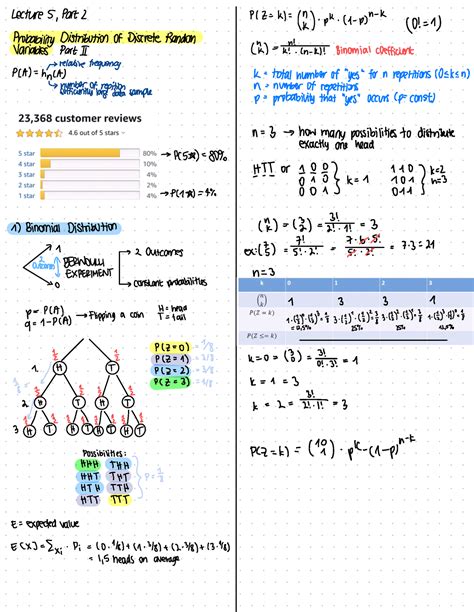 Lecture 5, Part 2
Probability Distribution of Discrete Random
Variables Part II
P(A) = hn(A) → relative frequency
→ number of repition
sufficiently long data sample
23,368 customer reviews
4.6 out of 5 stars
5 star 80% → P(5★) = 80%
4 star 10%
3 star 4%
2 star 2%
1 star 4% → P(1★) = 4%
1) Binomial Distribution
1
2 Outcomes
0
BERNOULLI
EXPERIMENT
→ 2 Outcomes
→ constant probabilities
p = P(A)
q = 1-P(A)
→ Flipping a coin
H = head
T = tail
P(Z=0) = 1/8
P(Z=1) = 3/8
P(Z=2) = 3/8
P(Z=3) = 1/8
1. H T
2. H T H T
3. H T H T H T H T
Possibilities:
HHH THH
HHT THT
HTH TTH
HTT TTT
P = 1/8
E = expected value
E[X] = Σxi · Pi = (0·1/8) + (1·3/8) + (2·3/8) + (3·1/8)
= 1,5 heads on average
P(Z=k) = (n k) · p^k · (1-p)^n-k (0!=1)
(n k) = n! / k!·(n-k)! Binomial Coefficient
k = total number of "yes" for n repetitions (0≤k≤n)
n = number of repetitions
p = probability that "yes" occurs (p=const)
n = 3 → how many possibilities to distribute
exactly one head
HTT or
1 0 0
0 1 0
0 0 1
} k = 1
1 1 0
1 0 1
0 1 1
} k=2
n=3
(n k) = (3 2) = 3! / 2!·1! = 3
ex: (7 5) = 7! / 5!·2! = 7·6·5! / 5!·2! = 7·3 = 21
n=3
k 0 1 2 3
(n k) 1 3 3 1
P(Z = k)
P(Z <= k)
k=0 = (3 0) = 3! / 0!·3! = 1
k = 1 = 3
k = 2 = 3! / 2!·1! = 3
P(Z=k) = (10 1) · p^k - (1-p)^n-k